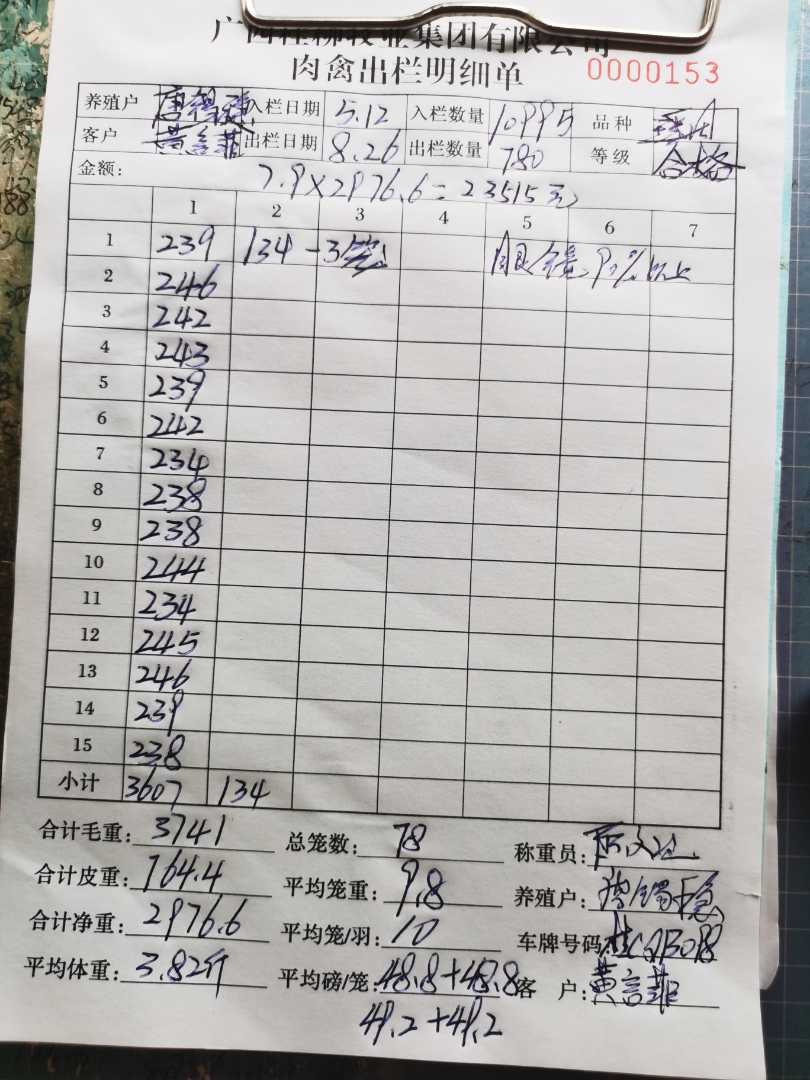 广西桂柳牧业集团有限公司
肉禽出栏明细单 0000153
养殖户 入栏日期 5.12 入栏数量 10995 品种
客户 黄言菲 出栏日期 8.26 出栏数量 780 等级 合格
金额: 7.9×2976.6=23515元
1 2 3 4 5 6 7
1 239 134 -3笼 90%以上
2 246
3 242
4 243
5 239
6 242
7 234
8 238
9 238
10 244
11 234
12 245
13 246
14 239
15 238
小计 3607 134
合计毛重: 3741 总笼数: 78 称重员:
合计皮重: 764.4 平均笼重: 9.8 养殖户:
合计净重: 2976.6 平均笼/羽: 10 车牌号码:
平均体重: 3.82斤 平均磅/笼: 48.8+48.8 客 户: 黄言菲
49.2+49.2